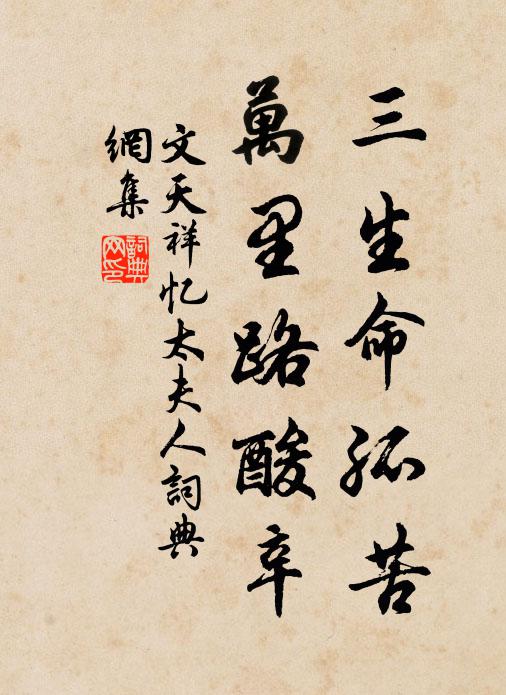 三生命孤苦
萬里路酸辛
文天祥忆太夫人詞典
網集
詞典网印